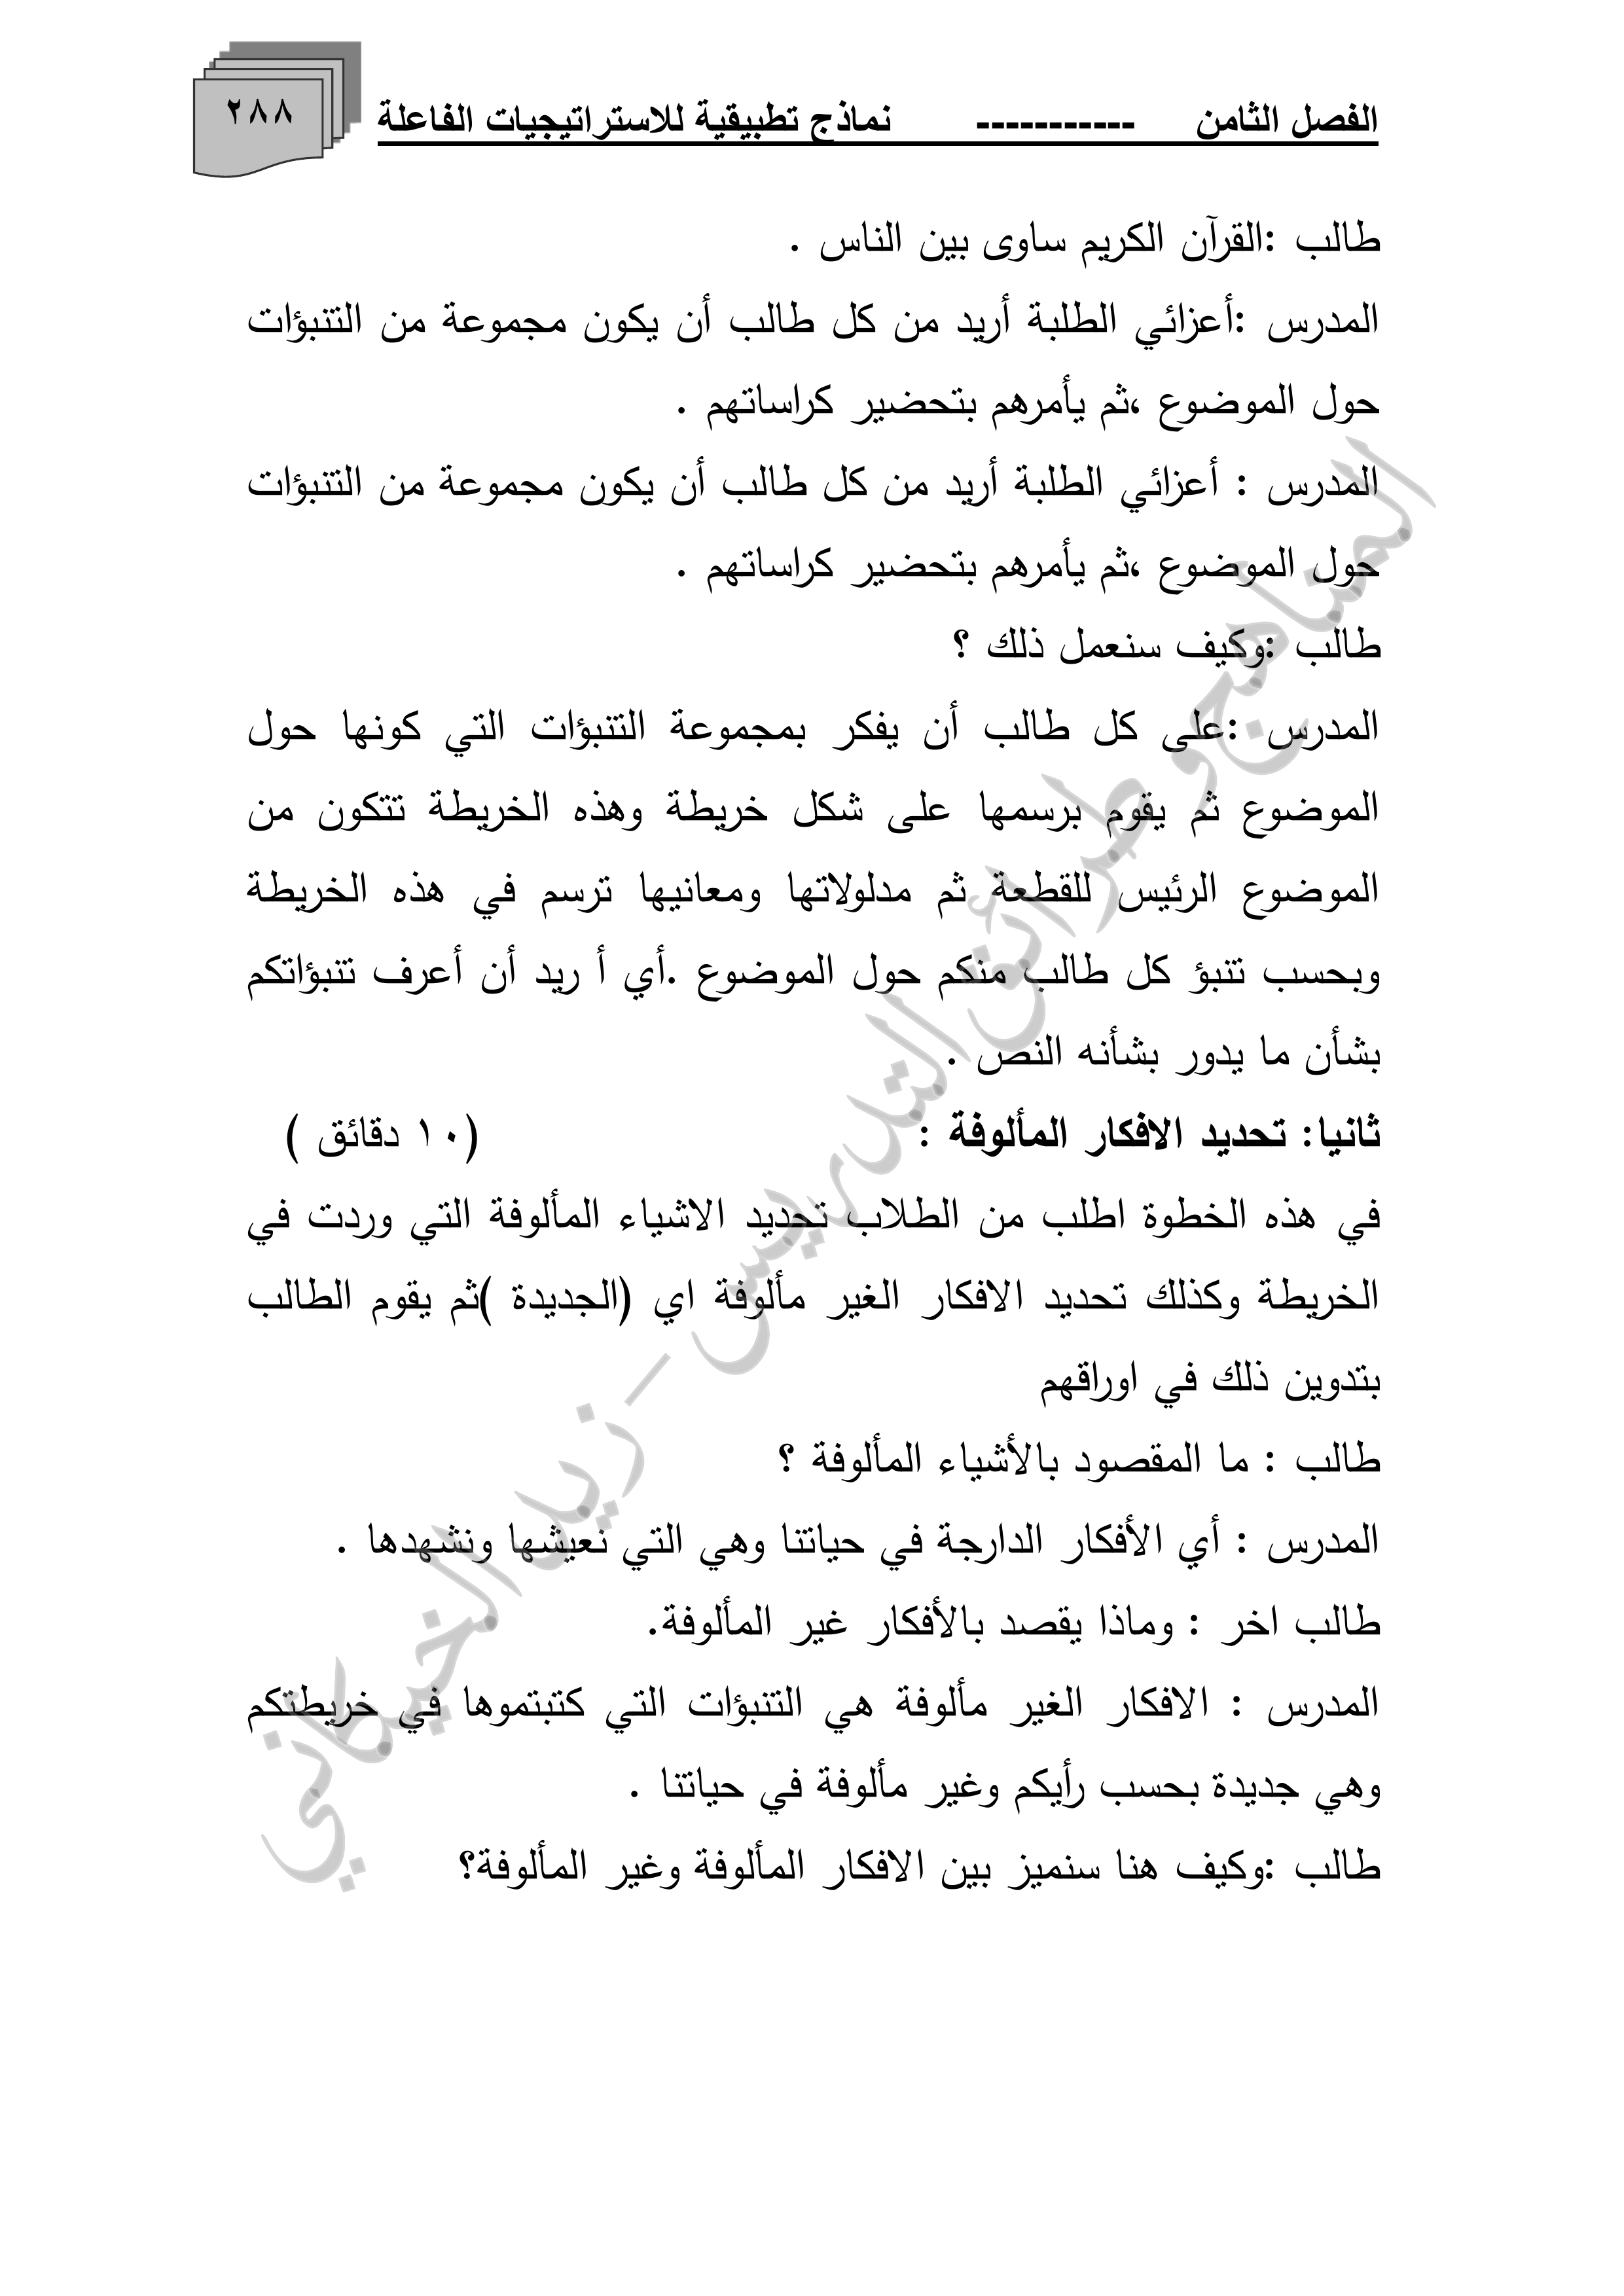 الفصل الثامن ----------- نماذج تطبيقية للاستراتيجيات الفاعلة
٢٨٨
طالب :القرآن الكريم ساوى بين الناس .
المدرس :أعزائي الطلبة أريد من كل طالب أن يكون مجموعة من التنبؤات
حول الموضوع ،ثم يأمرهم بتحضير كراساتهم .
المدرس : أعزائي الطلبة أريد من كل طالب أن يكون مجموعة من التنبؤات
حول الموضوع ،ثم يأمرهم بتحضير كراساتهم .
طالب :وكيف سنعمل ذلك ؟
المدرس :على كل طالب أن يفكر بمجموعة التنبؤات التي كونها حول
الموضوع ثم يقوم برسمها على شكل خريطة وهذه الخريطة تتكون من
الموضوع الرئيس للقطعة ثم مدلولاتها ومعانيها ترسم في هذه الخريطة
وبحسب تنبؤ كل طالب منكم حول الموضوع .أي أ ريد أن أعرف تنبؤاتكم
بشأن ما يدور بشأنه النص .
ثانيا: تحديد الافكار المألوفة : (١٠ دقائق )
في هذه الخطوة اطلب من الطلاب تحديد الاشياء المألوفة التي وردت في
الخريطة وكذلك تحديد الافكار الغير مألوفة اي (الجديدة )ثم يقوم الطالب
بتدوين ذلك في اوراقهم
طالب : ما المقصود بالأشياء المألوفة ؟
المدرس : أي الأفكار الدارجة في حياتنا وهي التي نعيشها ونشهدها .
طالب اخر : وماذا يقصد بالأفكار غير المألوفة.
المدرس : الافكار الغير مألوفة هي التنبؤات التي كتبتموها في خريطتكم
وهي جديدة بحسب رأيكم وغير مألوفة في حياتنا .
طالب :وكيف هنا سنميز بين الافكار المألوفة وغير المألوفة؟
المناهج وطرائق التدريس - زيد الخيكاني